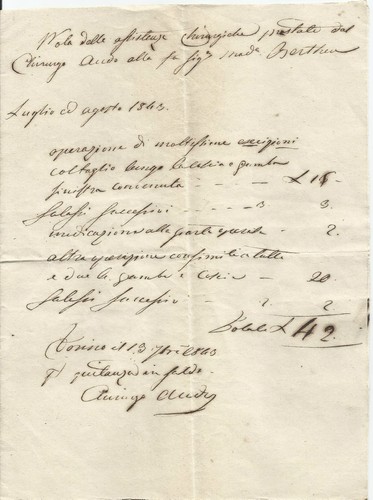 Nota delle assistenze chirurgiche prestate dal
Chirurgo Audo alla fu sigra mada Berthea
Luglio ed agosto 1843.
operazione di moltissime escigioni
col taglio lungo la coscia e gamba
sinistra - - - £ 15-
Salassi successivi - - 3 3.
medicazione alle parti - 2.
altra operazione consimile a tutte
e due le gambe e coscie - - 20
Salassi successivi - - 2. 2.
Totale £ 42.
Torino il 13 7bre 1843
p quitanza in saldo.
Chirurgo Audo